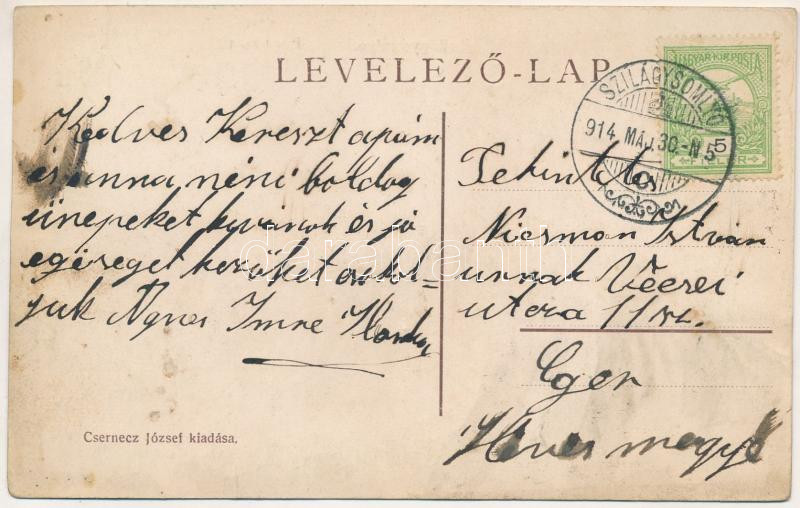 LEVELEZŐ-LAP
MAGYAR KIR. POSTA
SZILÁGYSOMLYÓ
914 MÁJ. 30.-N 5
5
Kedves Kereszt apám
és anna néni boldog
ünepeket kivanok és jó
egéseget kezüket csokol=
juk Agnes Imre
Tekintetes
Nicsman István
urnak Vécsei
utcza 11 sz.
Eger
Heves megye
Csernecz József kiadása.
darabanth